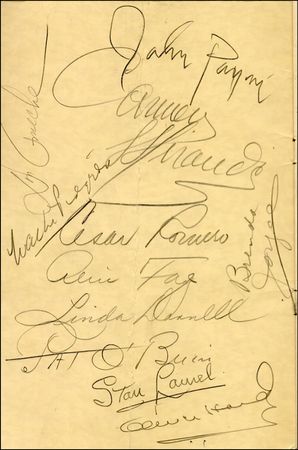 John Payne
Carmen
Miranda
Don Ameche
Walter Pidgeon
Cesar Romero
Brenda
Joyce
Alice Faye
Linda Darnell
Pat O'Brien
Stan Laurel
Oliver Hardy